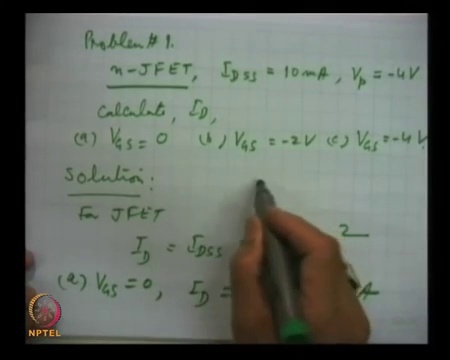 Problem # 1.
n-JFET, I DSS = 10 mA, Vp = -4V
Calculate, ID,
(a) VGS = 0 (b) VGS = -2V (c) VGS = -4V.
Solution:
For JFET
ID = IDSS 2
(a) VGS = 0, ID = A
NPTEL